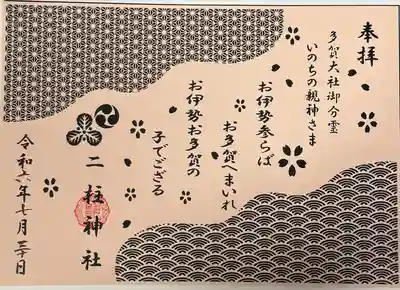 奉拝
多賀大社御分霊
いのちの親神さま
お伊勢参らば
お多賀へまいれ
お伊勢お多賀の
子でござる
二柱神社
令和六年七月三十日